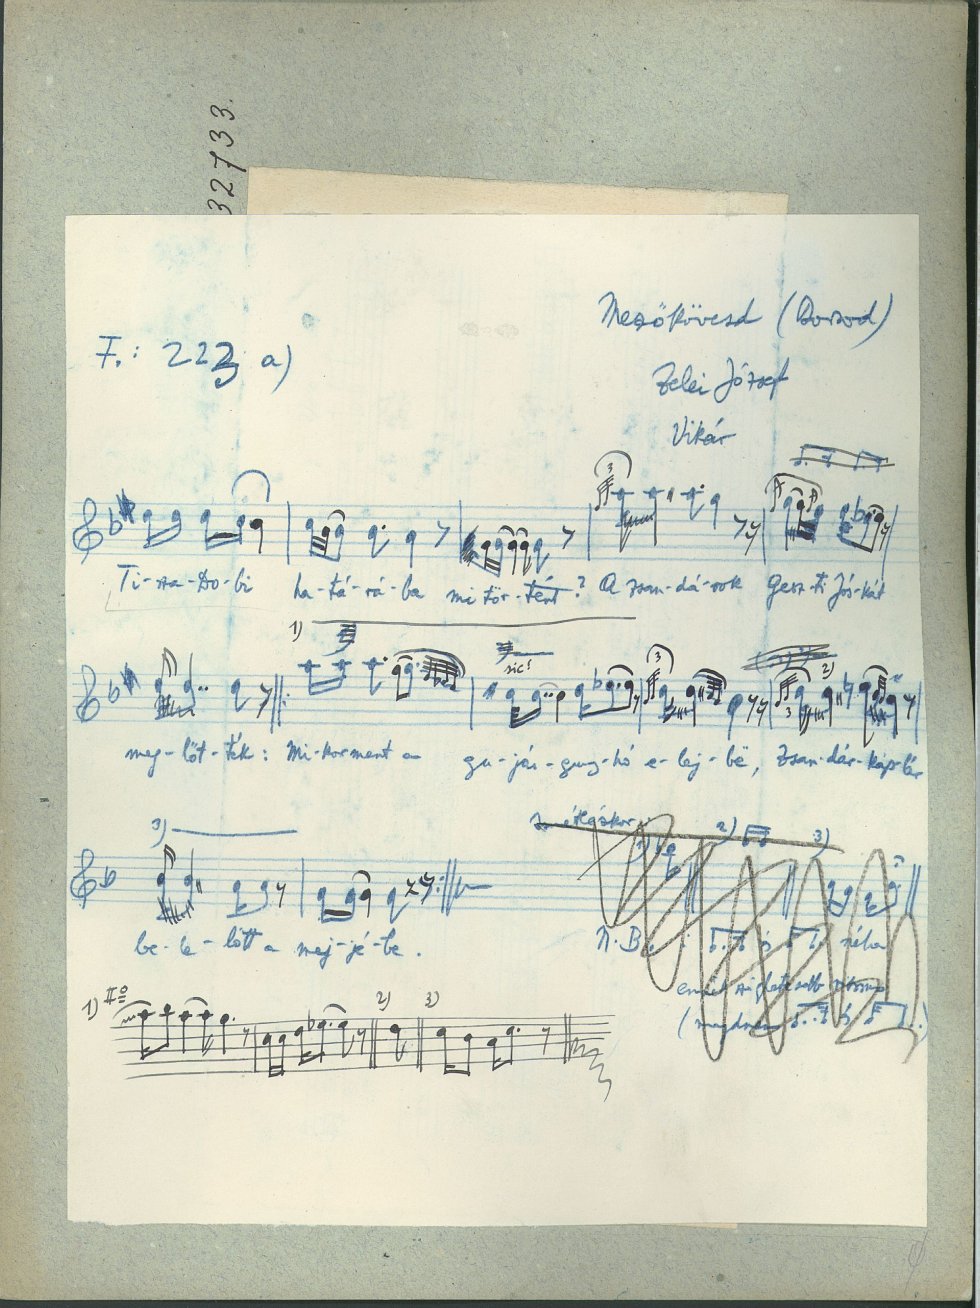 32733.
Mezőkövesd (Borsod)
F.: 223 a)
Zelei József
Vikár
3
Ti-sza-Do-bi ha-tá-rá-ba mi tör-tént? A zsan-dá-rok Gesz-ti Jós-kát
1)
sic! 3 2)
3
meg-lőt-ték: Mi-kor ment a gu-jás-guny-hó e-lej-bë, Zsan-dár-káp-lár
3)
2) 3)
be-le-lőtt a mej-jé-be.
N.B. : és néha
ennek
(
1) IIº 2) 3)